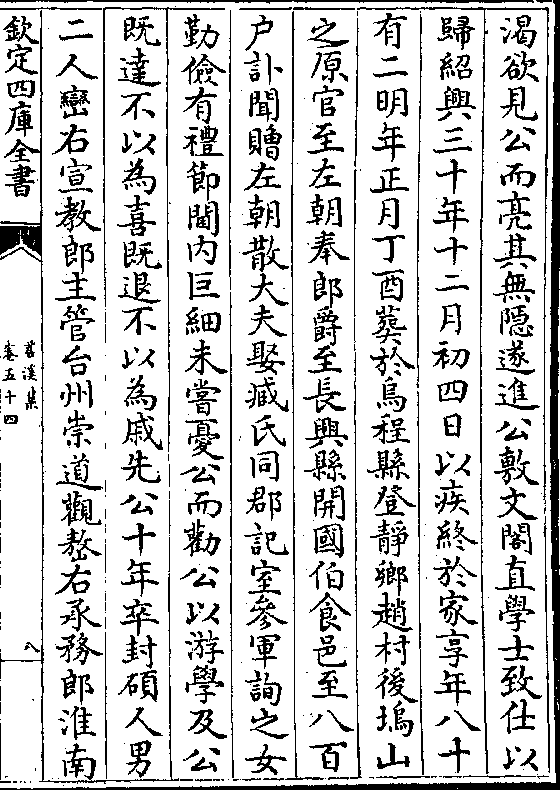 渴欲見公而亮其無隱遂進公敷文閣直學士致仕以
歸紹興三十年十二月初四日以疾終於家享年八十
有二明年正月丁酉葬於烏程縣登靜鄉趙村後塢山
之原官至左朝奉郎爵至長興縣開國伯食邑至八百
户訃聞贈左朝散大夫娶臧氏同郡記室參軍詢之女
勤儉有禮節閫内巨細未嘗憂公而勸公以游學及公
既達不以為喜既退不以為戚先公十年卒封碩人男
二人巒右宣教郎主管台州崇道觀嶅右承務郎淮南
欽定四庫全書
苕溪集
卷五十四
八